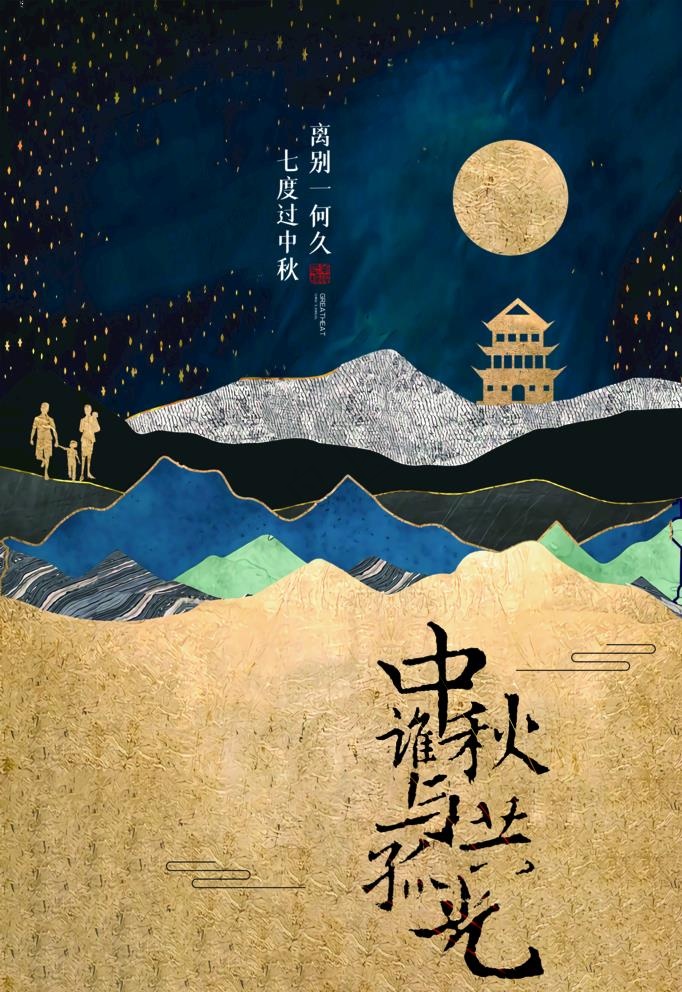 离别一何久
七度过中秋
GREATHEAT
中秋谁与共孤光